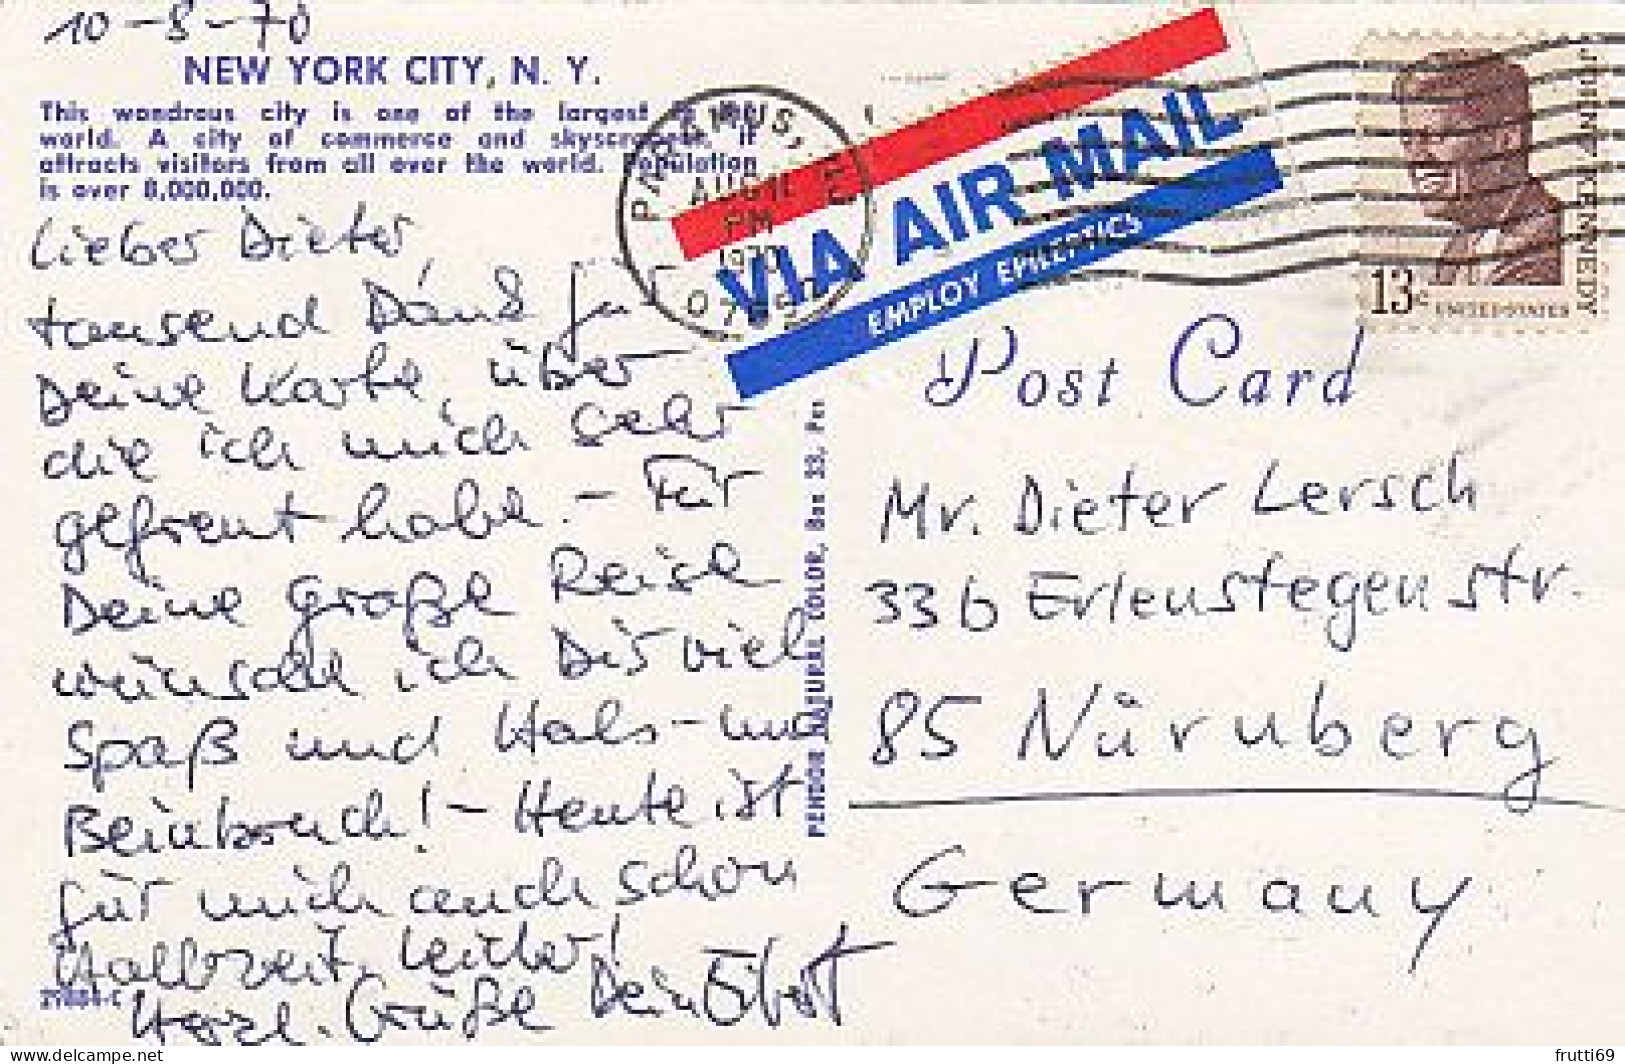 10-8-70
NEW YORK CITY, N. Y.
This wondrous city is one of the largest in the
world. A city of commerce and skyscrapers, it
attracts visitors from all over the world. Population
is over 8,000,000.
Lieber Dieter,
tausend Dank für
Deine Karte, über
die ich mich sehr
gefreut habe. - Für
Deine große Reise
wünsche ich Dir viel
Spaß und Hals- und
Beinbruch! - Heute ist
für mich auch schon
Halbzeit, leider!
Herzl. Grüße Dein
PENDOR NATURAL COLOR, Box 22,
PARAMUS, N.J.
AUG 11
PM
1970
VIA AIR MAIL
EMPLOY EPILEPTICS
JOHN F. KENNEDY
13c
UNITED STATES
Post Card
Mr. Dieter Lersch
336 Erlenstegenstr.
85 Nürnberg
Germany
delcampe.net
frutti69